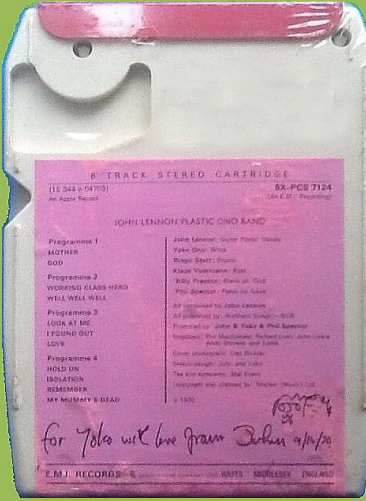 8 TRACK STEREO CARTRIDGE
(1E 344 o 04703) 8X-PCS 7124
An Apple Record (An E.M.I. Recording)
JOHN LENNON/PLASTIC ONO BAND
Programme 1
MOTHER
GOD
Programme 2
WORKING CLASS HERO
WELL WELL WELL
Programme 3
LOOK AT ME
I FOUND OUT
LOVE
Programme 4
HOLD ON
ISOLATION
REMEMBER
MY MUMMY'S DEAD
John Lennon: Guitar Piano Vocals
Yoko Ono: Wind
Ringo Starr: Drums
Klaus Voormann: Bass
Billy Preston: Piano on 'God'
Phil Spector: Piano on 'Love'
All composed by John Lennon
All published by: Northern Songs
Produced by: John & Yoko & Phil Spector
Engineers: Phil Macdonald, Richard Lush, John Leckie,
Andy Stevens and Eddie
Cover photograph: Dan Richter
Sleeve design: John and Yoko
Tea and sympathy: Mal Evans
℗ 1970
for Yoko with love from John 9/10/70
E.M.I. RECORDS HAYES MIDDLESEX ENGLAND